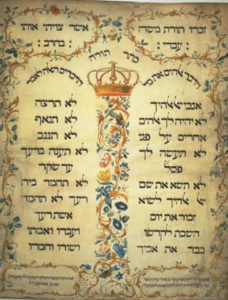 זכרו תורת משה
עבדי :
אשר צויתי אותו
בחרב :
כתר תורה
וידבר אלהים את כל
הדברים האלה לאמר
אנכי אלהיך
לא יהיה לך אלהים
אחרים על פני
לא תעשה לך
פסל
לא תשא את שם
אלהיך לשוא
זכור את יום
השבת לקדשו
כבד את אביך
לא תרצח
לא תנאף
לא תגנב
לא תענה ברעך
עד שקר
לא תחמד בית
רעך לא תחמד
אשת רעך
ועבדו ואמתו
ושורו וחמרו